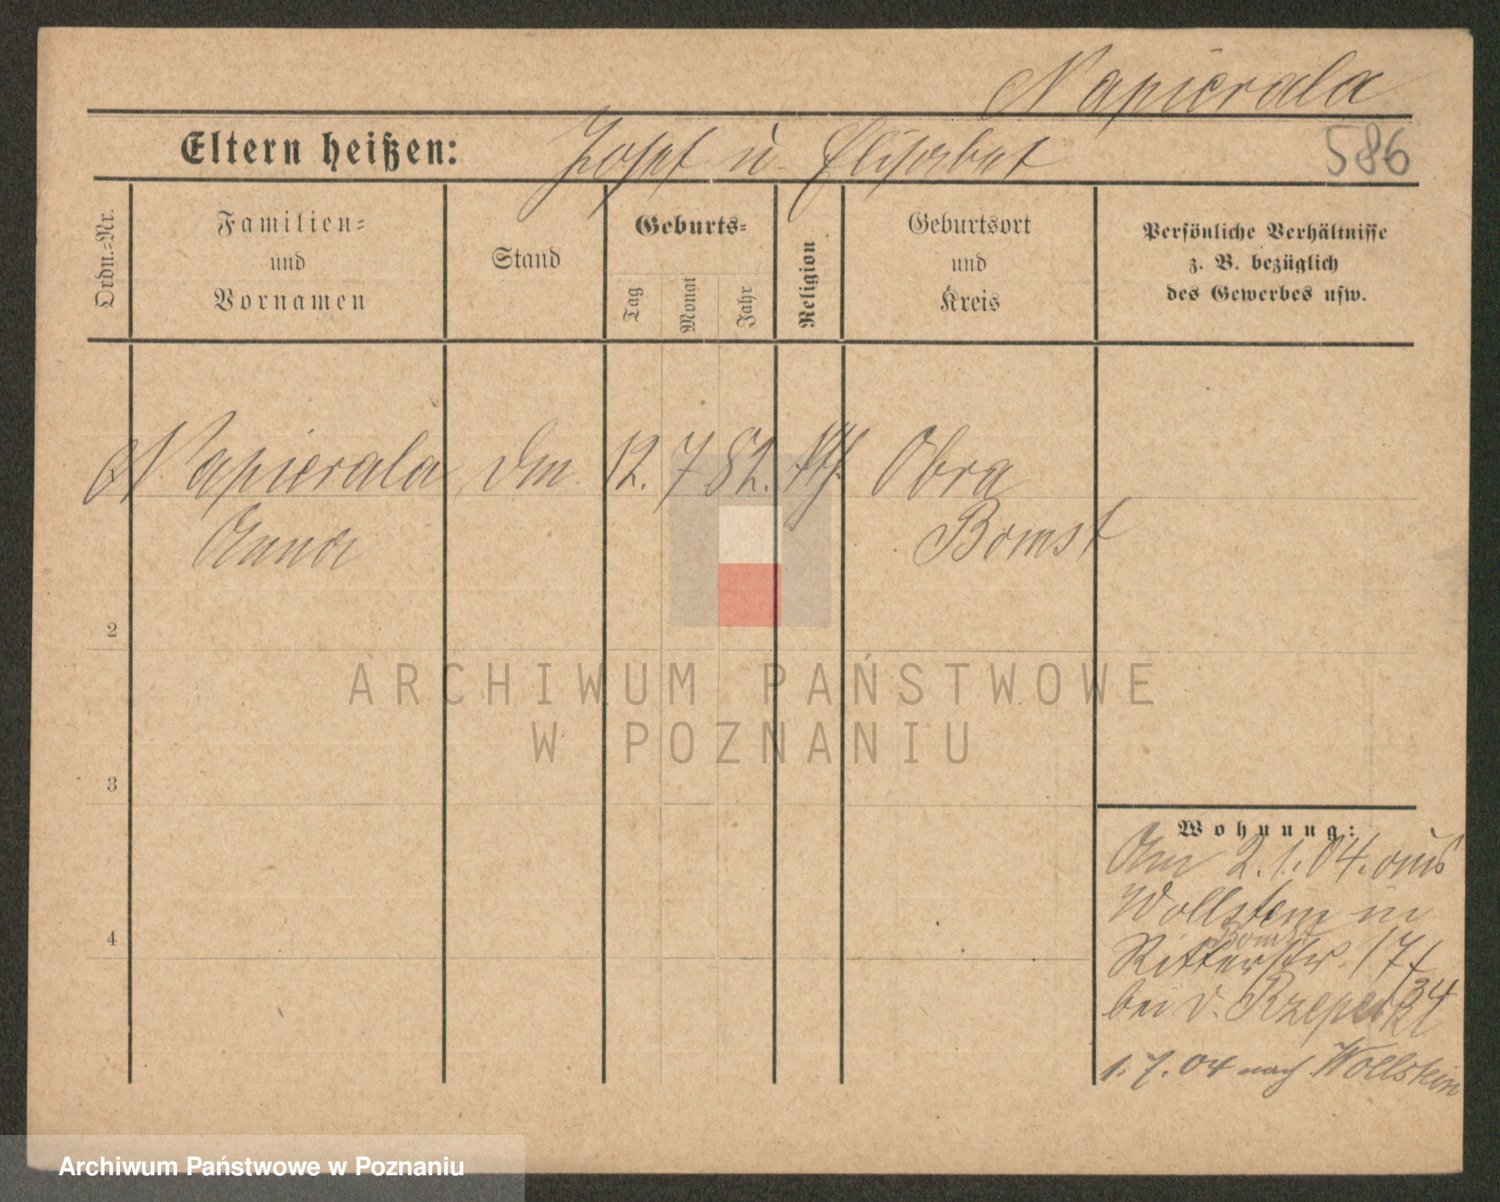 Napierala
Eltern heißen: Josef u Elisabet
586
Ordn.-Nr.
Familien-
und
Vornamen
Stand
Geburts-
Tag
Monat
Jahr
Religion
Geburtsort
und
Kreis
Persönliche Verhältnisse
z. B. bezüglich
des Gewerbes usw.
Napierala Dm. 12. 7 82. kth. Obra
Anna Bomst
2
3
4
ARCHIWUM PAŃSTWOWE
W POZNANIU
Wohnung:
Am 2.1.04. aus
Wollstein in
Bomst
Ritterstr. 17
34
bei v.
1.7.04 nach Wollstein
Archiwum Państwowe w Poznaniu